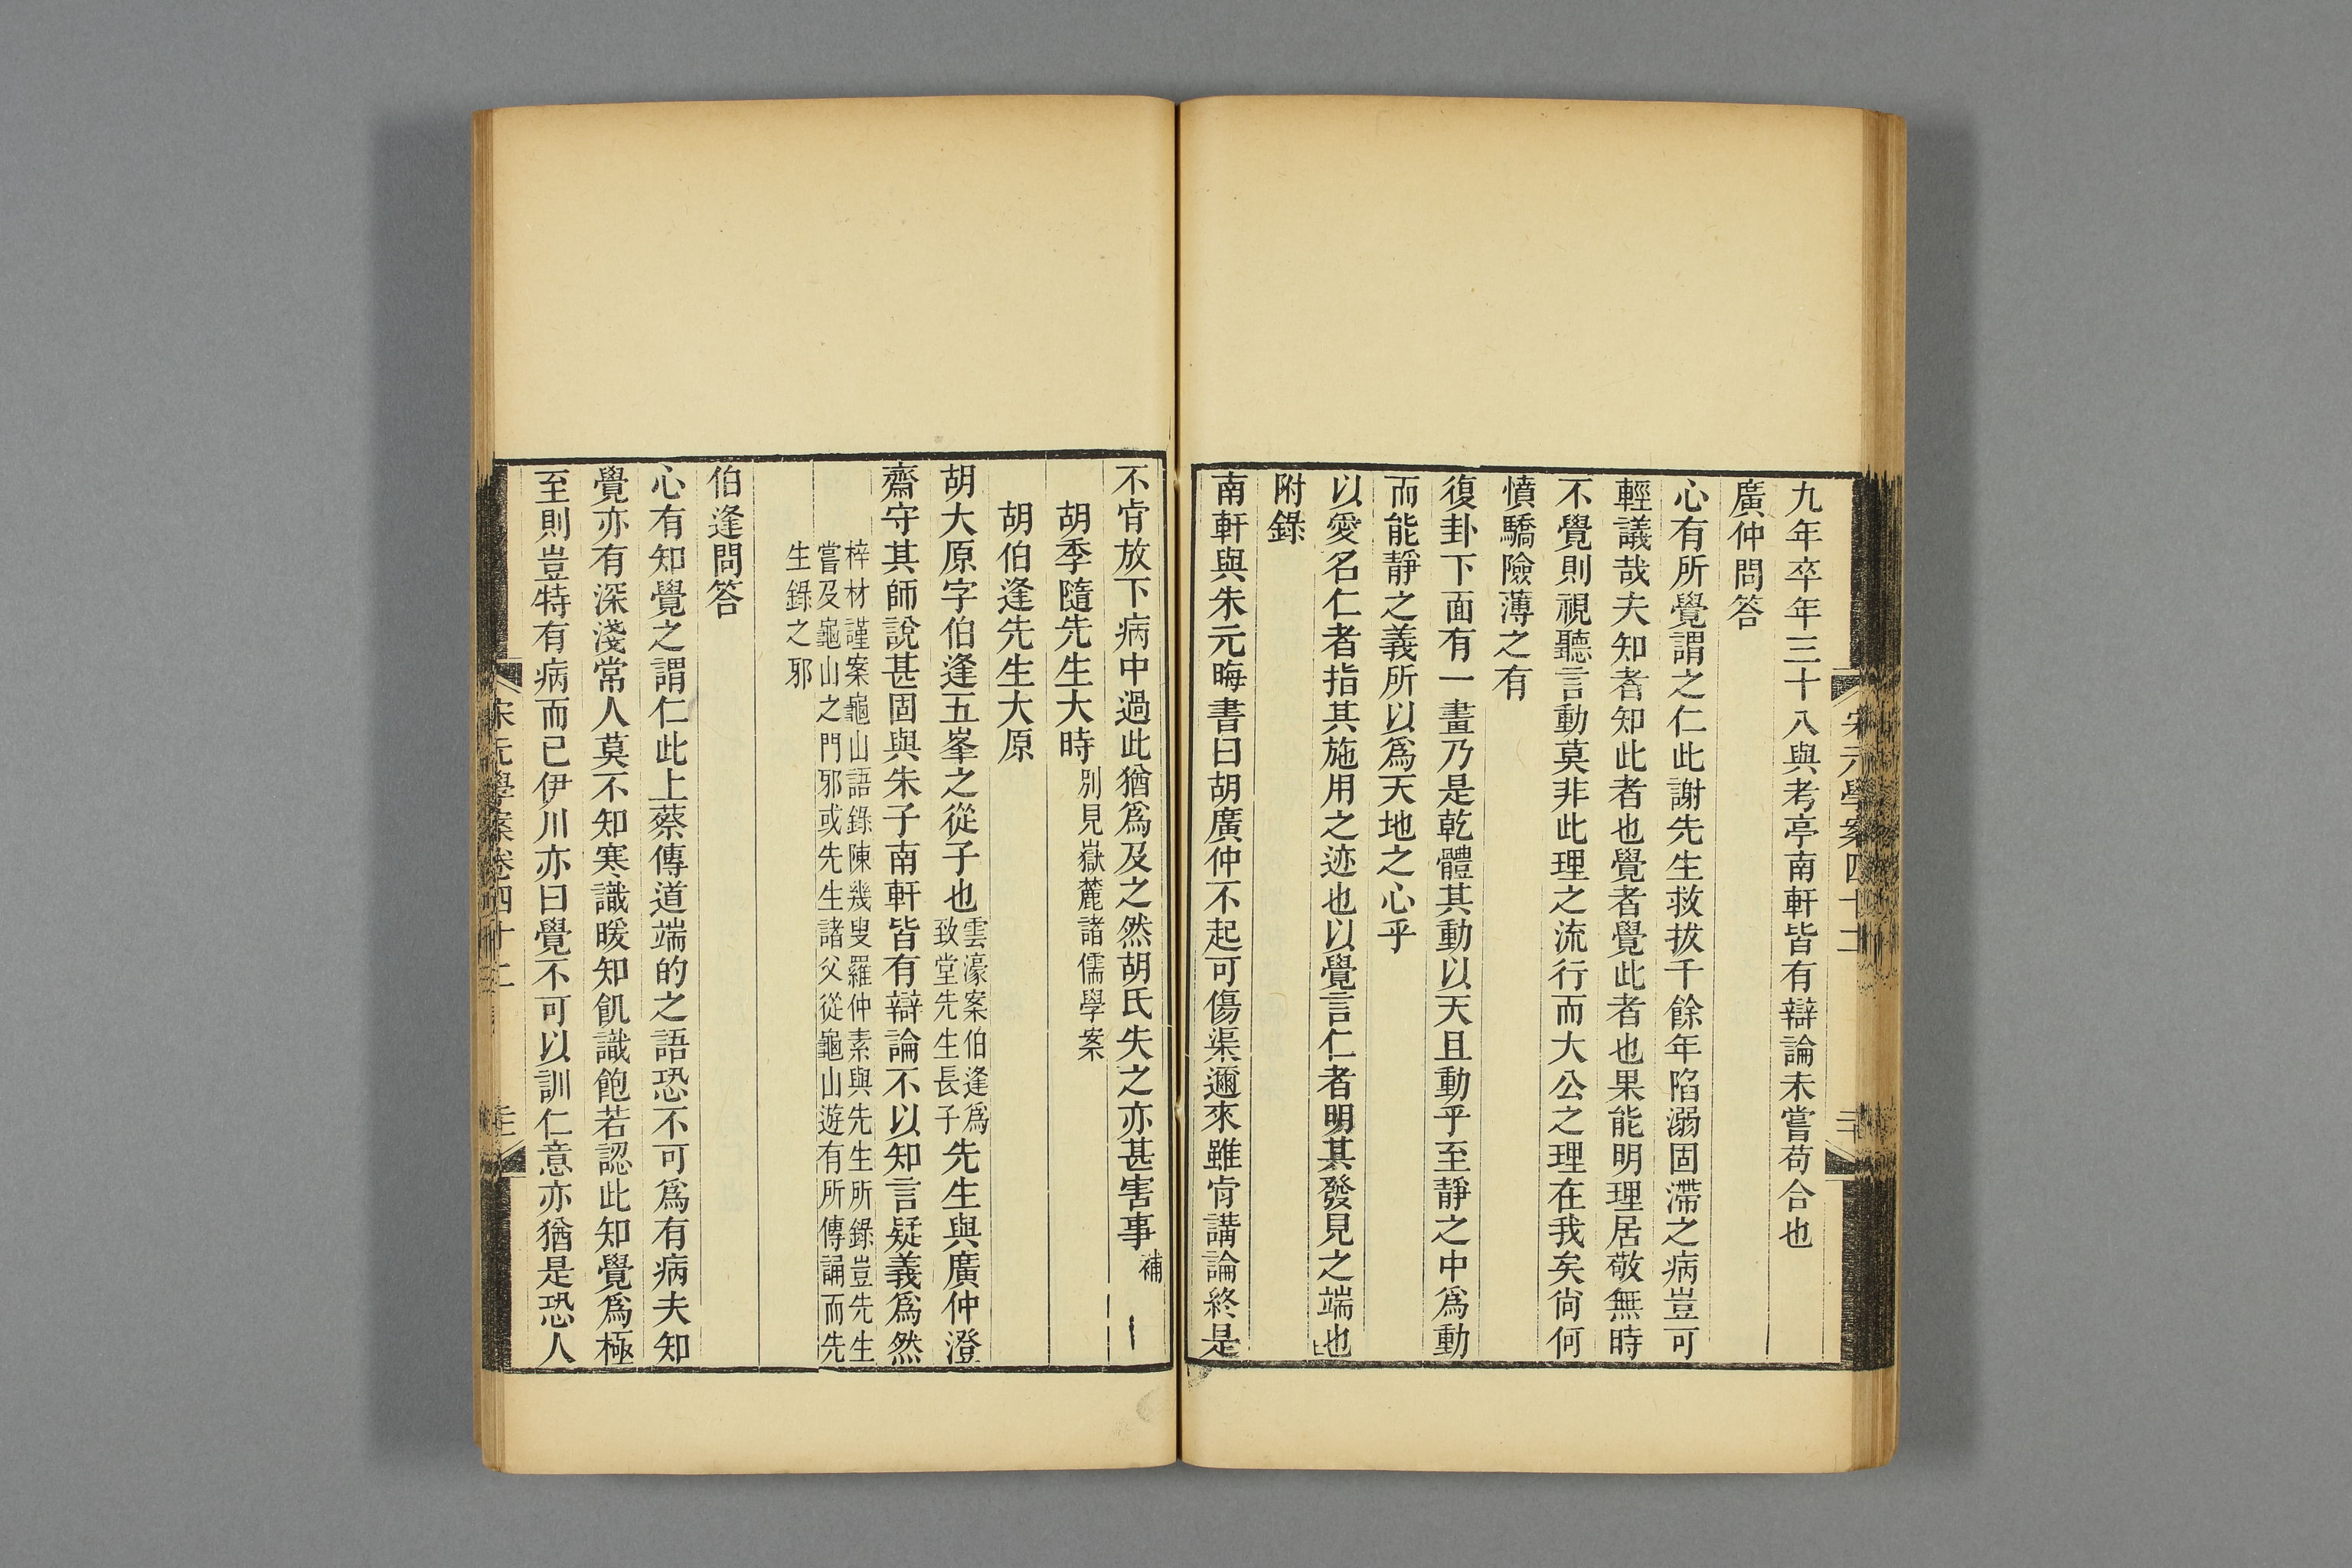 九年卒年三十八與考亭南軒皆有辯論未嘗苟合也
廣仲問答
心有所覺謂之仁此謝先生救拔千餘年陷溺固滯之病豈可
輕議哉夫知者知此者也覺者覺此者也果能明理居敬無時
不覺則視聽言動莫非此理之流行而大公之理在我矣尙何
憤驕險薄之有
復卦下面有一畫乃是乾體其動以天且動乎至靜之中爲動
而能靜之義所以爲天地之心乎
以愛名仁者指其施用之迹也以覺言仁者明其發見之端也
附錄
南軒與朱元晦書曰胡廣仲不起可傷渠邇來雖肯講論終是
不肯放下病中過此猶爲及之然胡氏失之亦甚害事補
胡季隨先生大時別見嶽麓諸儒學案
胡伯逢先生大原
胡大原字伯逢五峯之從子也雲濠案伯逢爲致堂先生長子先生與廣仲澄
齋守其師說甚固與朱子南軒皆有辯論不以知言疑義爲然
梓材謹案龜山語錄陳幾叟羅仲素與先生所錄豈先生
嘗及龜山之門邪或先生諸父從龜山遊有所傳誦而先
生錄之邪
伯逢問答
心有知覺之謂仁此上蔡傳道端的之語恐不可爲有病夫知
覺亦有深淺常人莫不知寒識暖知飢識飽若認此知覺爲極
至則豈特有病而已伊川亦曰覺不可以訓仁意亦猶是恐人
宋元學案卷四十二